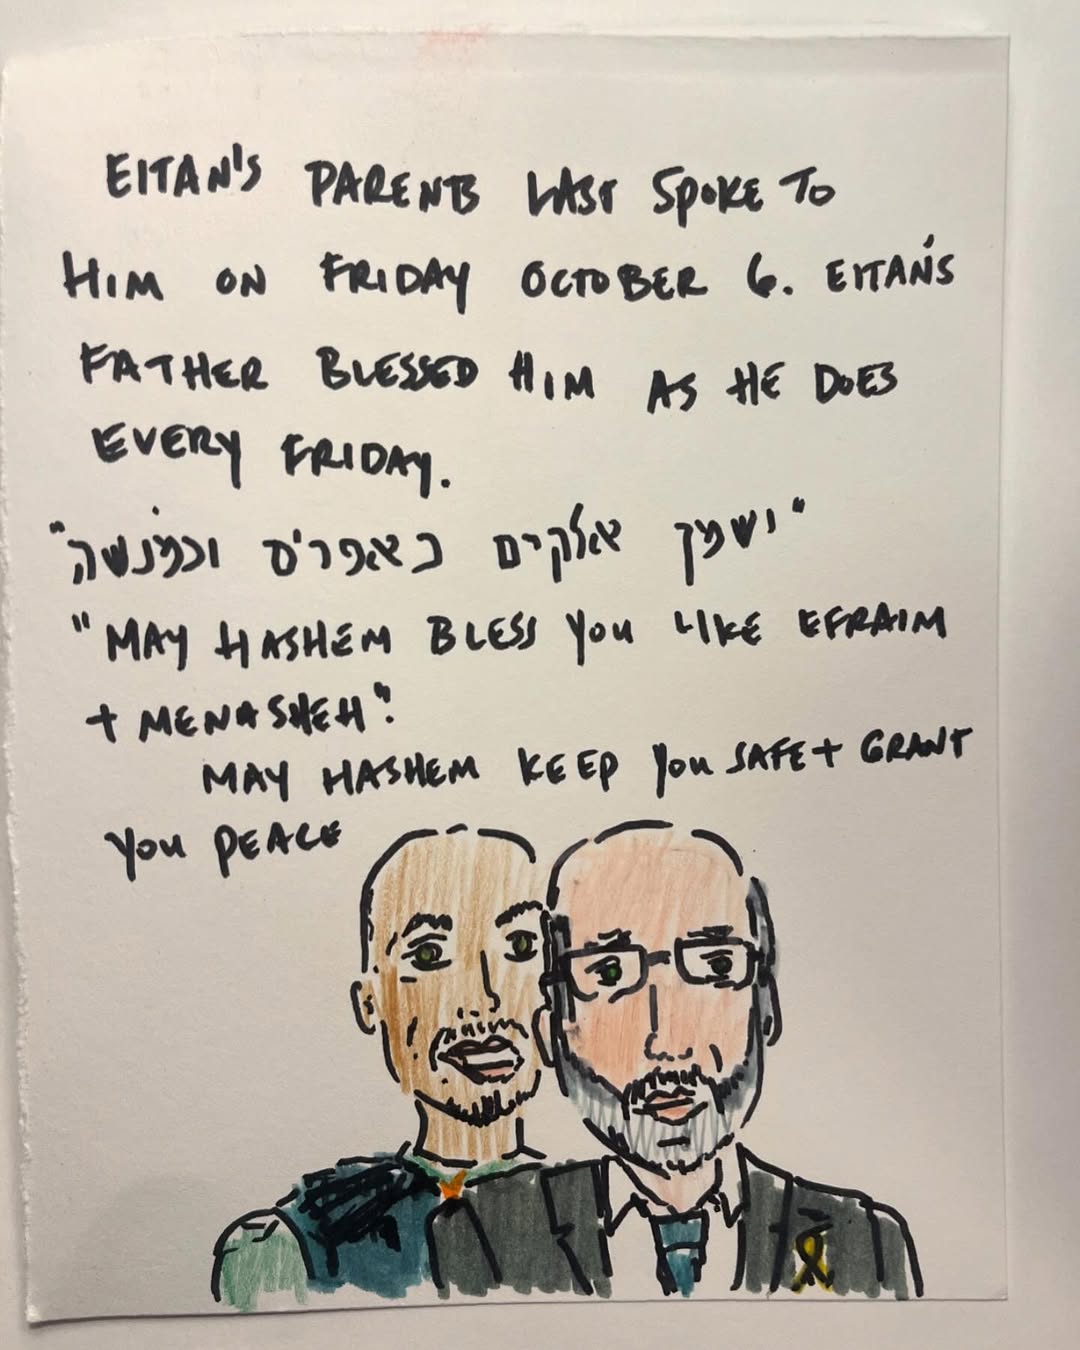 EITAN'S PARENTS LAST SPOKE TO
HIM ON FRIDAY OCTOBER 6. EITAN'S
FATHER BLESSED HIM AS HE DOES
EVERY FRIDAY.
"ישמך אלקים כאפרים וכמנשה"
"MAY HASHEM BLESS YOU LIKE EFRAIM
+ MENASHEH".
MAY HASHEM KEEP YOU SAFE + GRANT
YOU PEACE